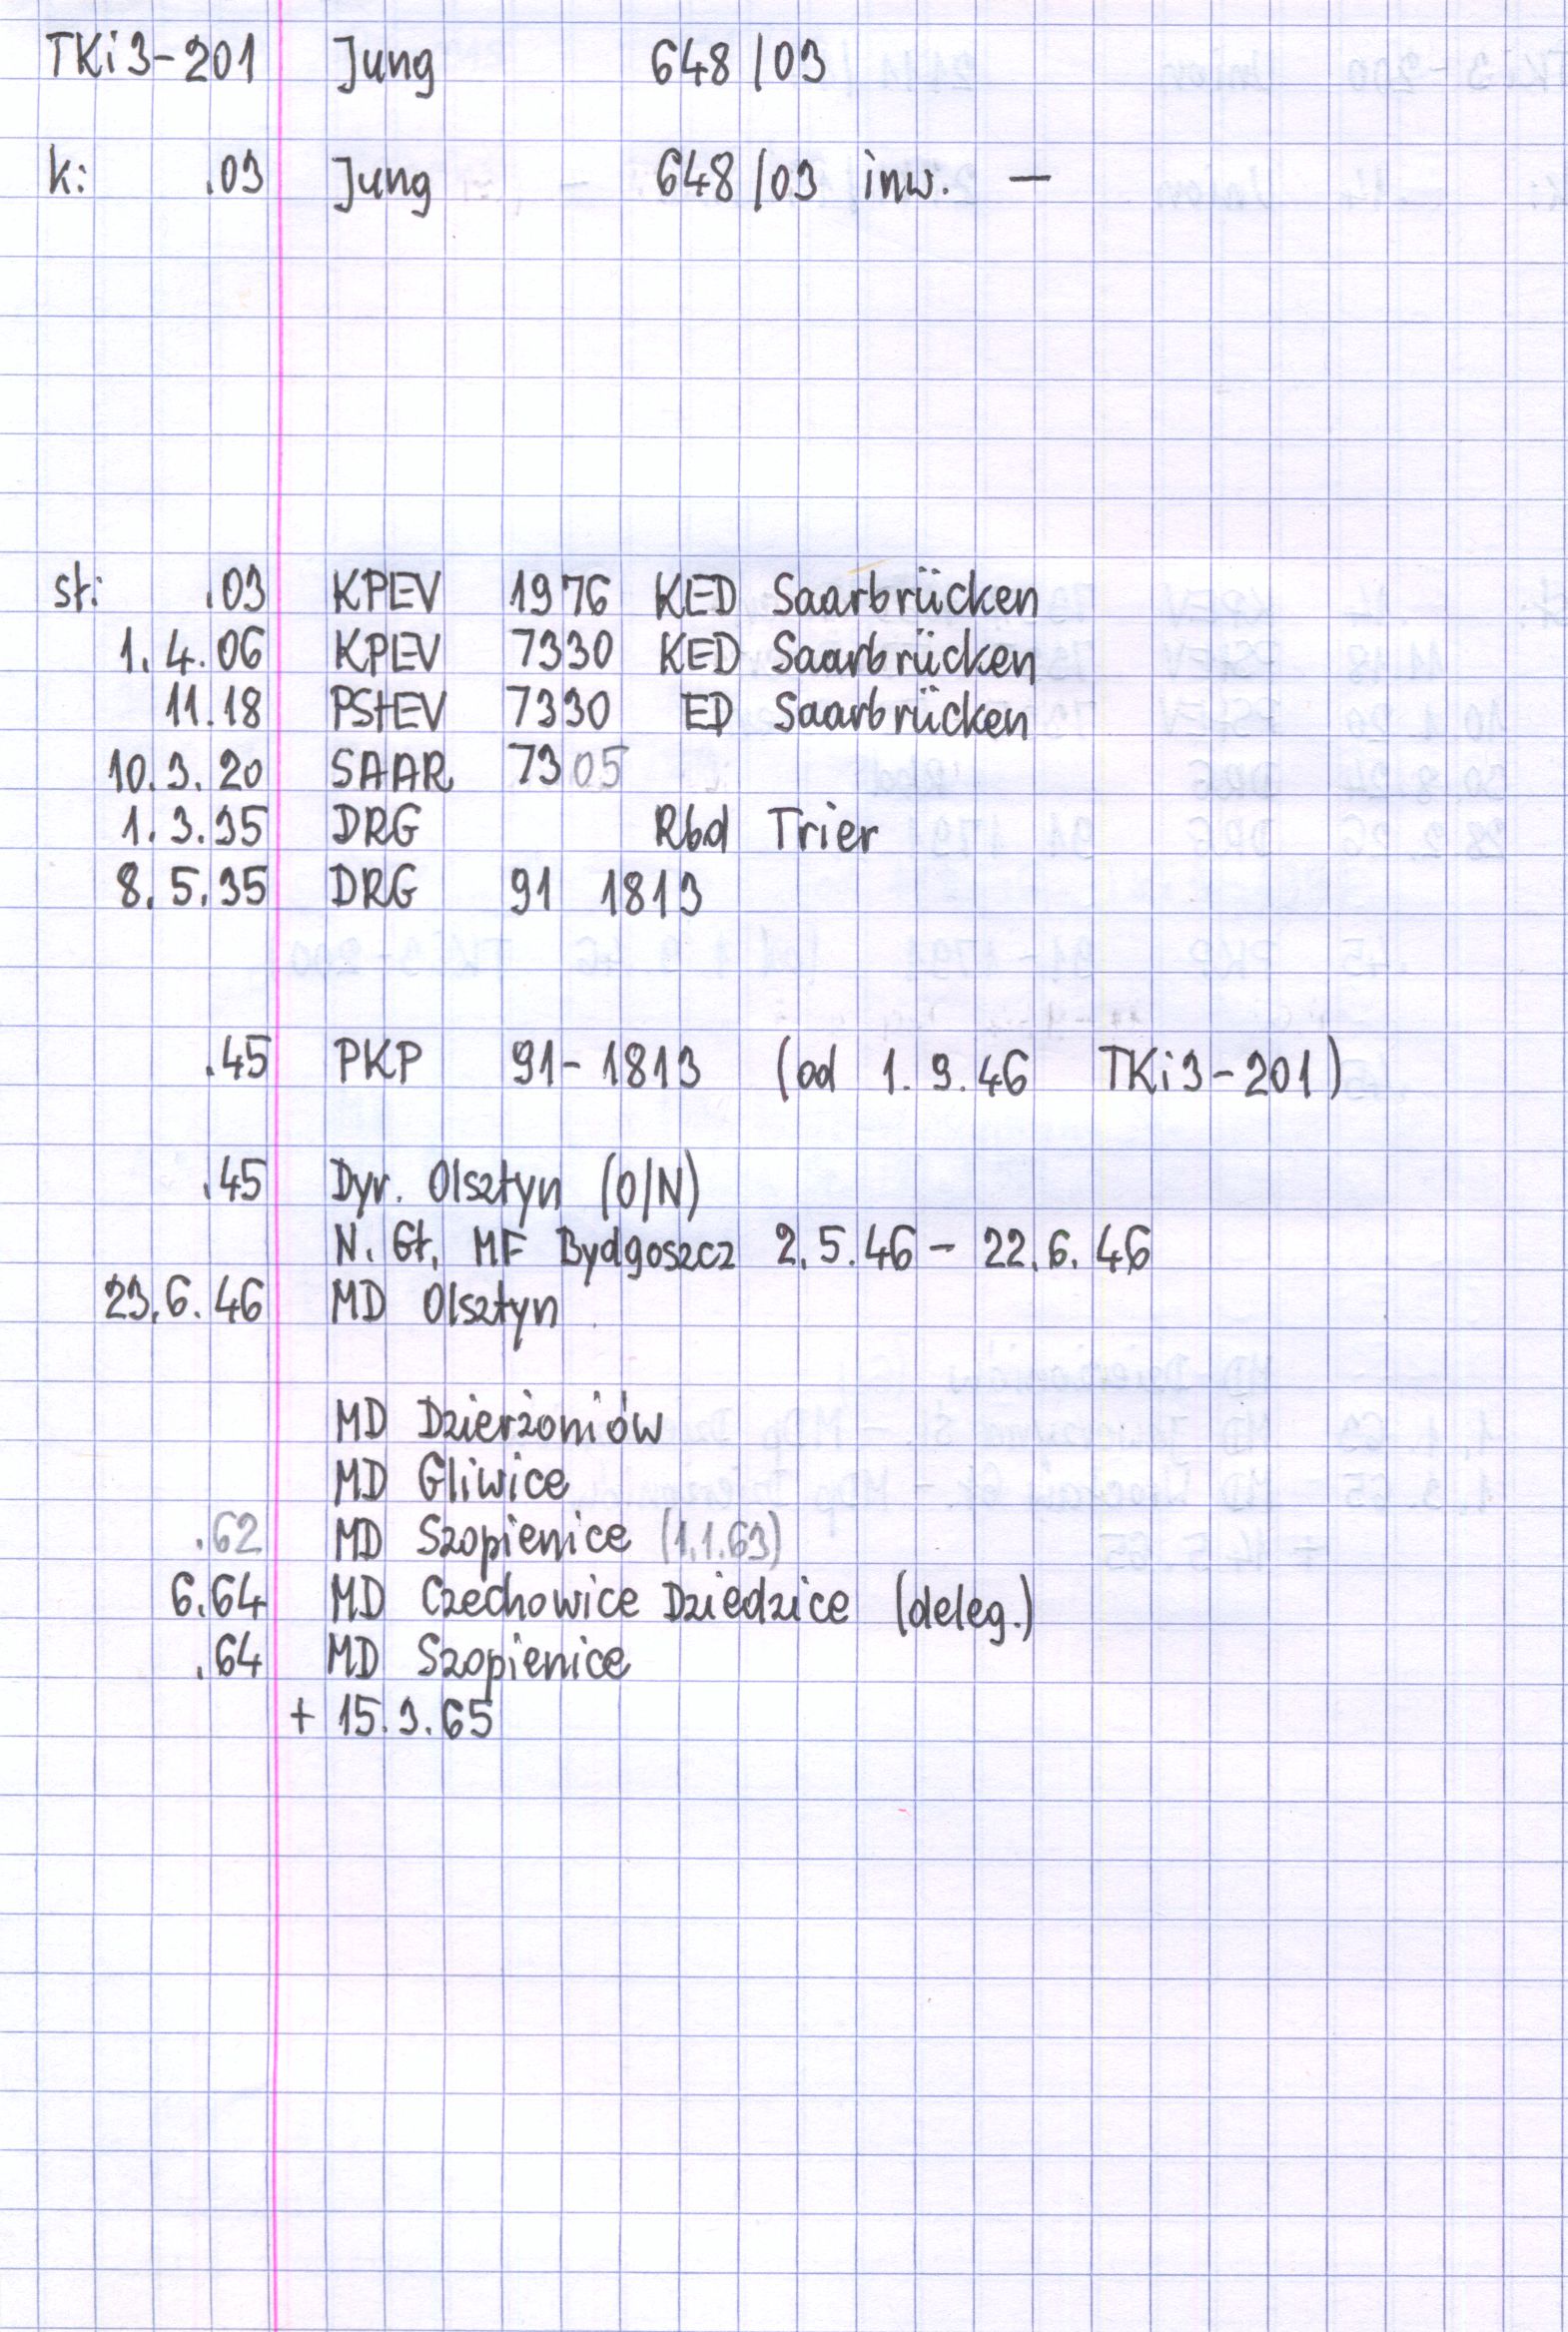 TKi3-201 Jung 648/03
k: .03 Jung 648/03 inw. —
st: .03 KPEV 1976 KED Saarbrücken
1.4.06 KPEV 7330 KED Saarbrücken
11.18 PStEV 7330 ED Saarbrücken
10.3.20 SAAR 7305
1.3.35 DRG Rbd Trier
8.5.35 DRG 91 1813
.45 PKP 91-1813 (od 1.9.46 TKi3-201)
.45 Dyr. Olsztyn (O/N)
N. Gł. MF Bydgoszcz 2.5.46 - 22.6.46
23.6.46 MD Olsztyn
MD Dzierżoniów
MD Gliwice
.62 MD Szopienice (1.1.63)
6.64 MD Czechowice Dziedzice (deleg.)
.64 MD Szopienice
+ 15.3.65